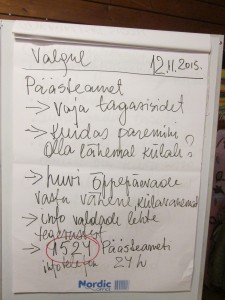 Valgul 12.11.2015.
Päästeamet
→ Vaja tagasisidet
→ Kuidas paremini
olla lähemal külale?
→ huvi õppepäevade
vastu vähene külavanemat
→ info valdade lehte
tegemistest
→ 1524 Päästeameti
infotelefon 24 h
Nordic